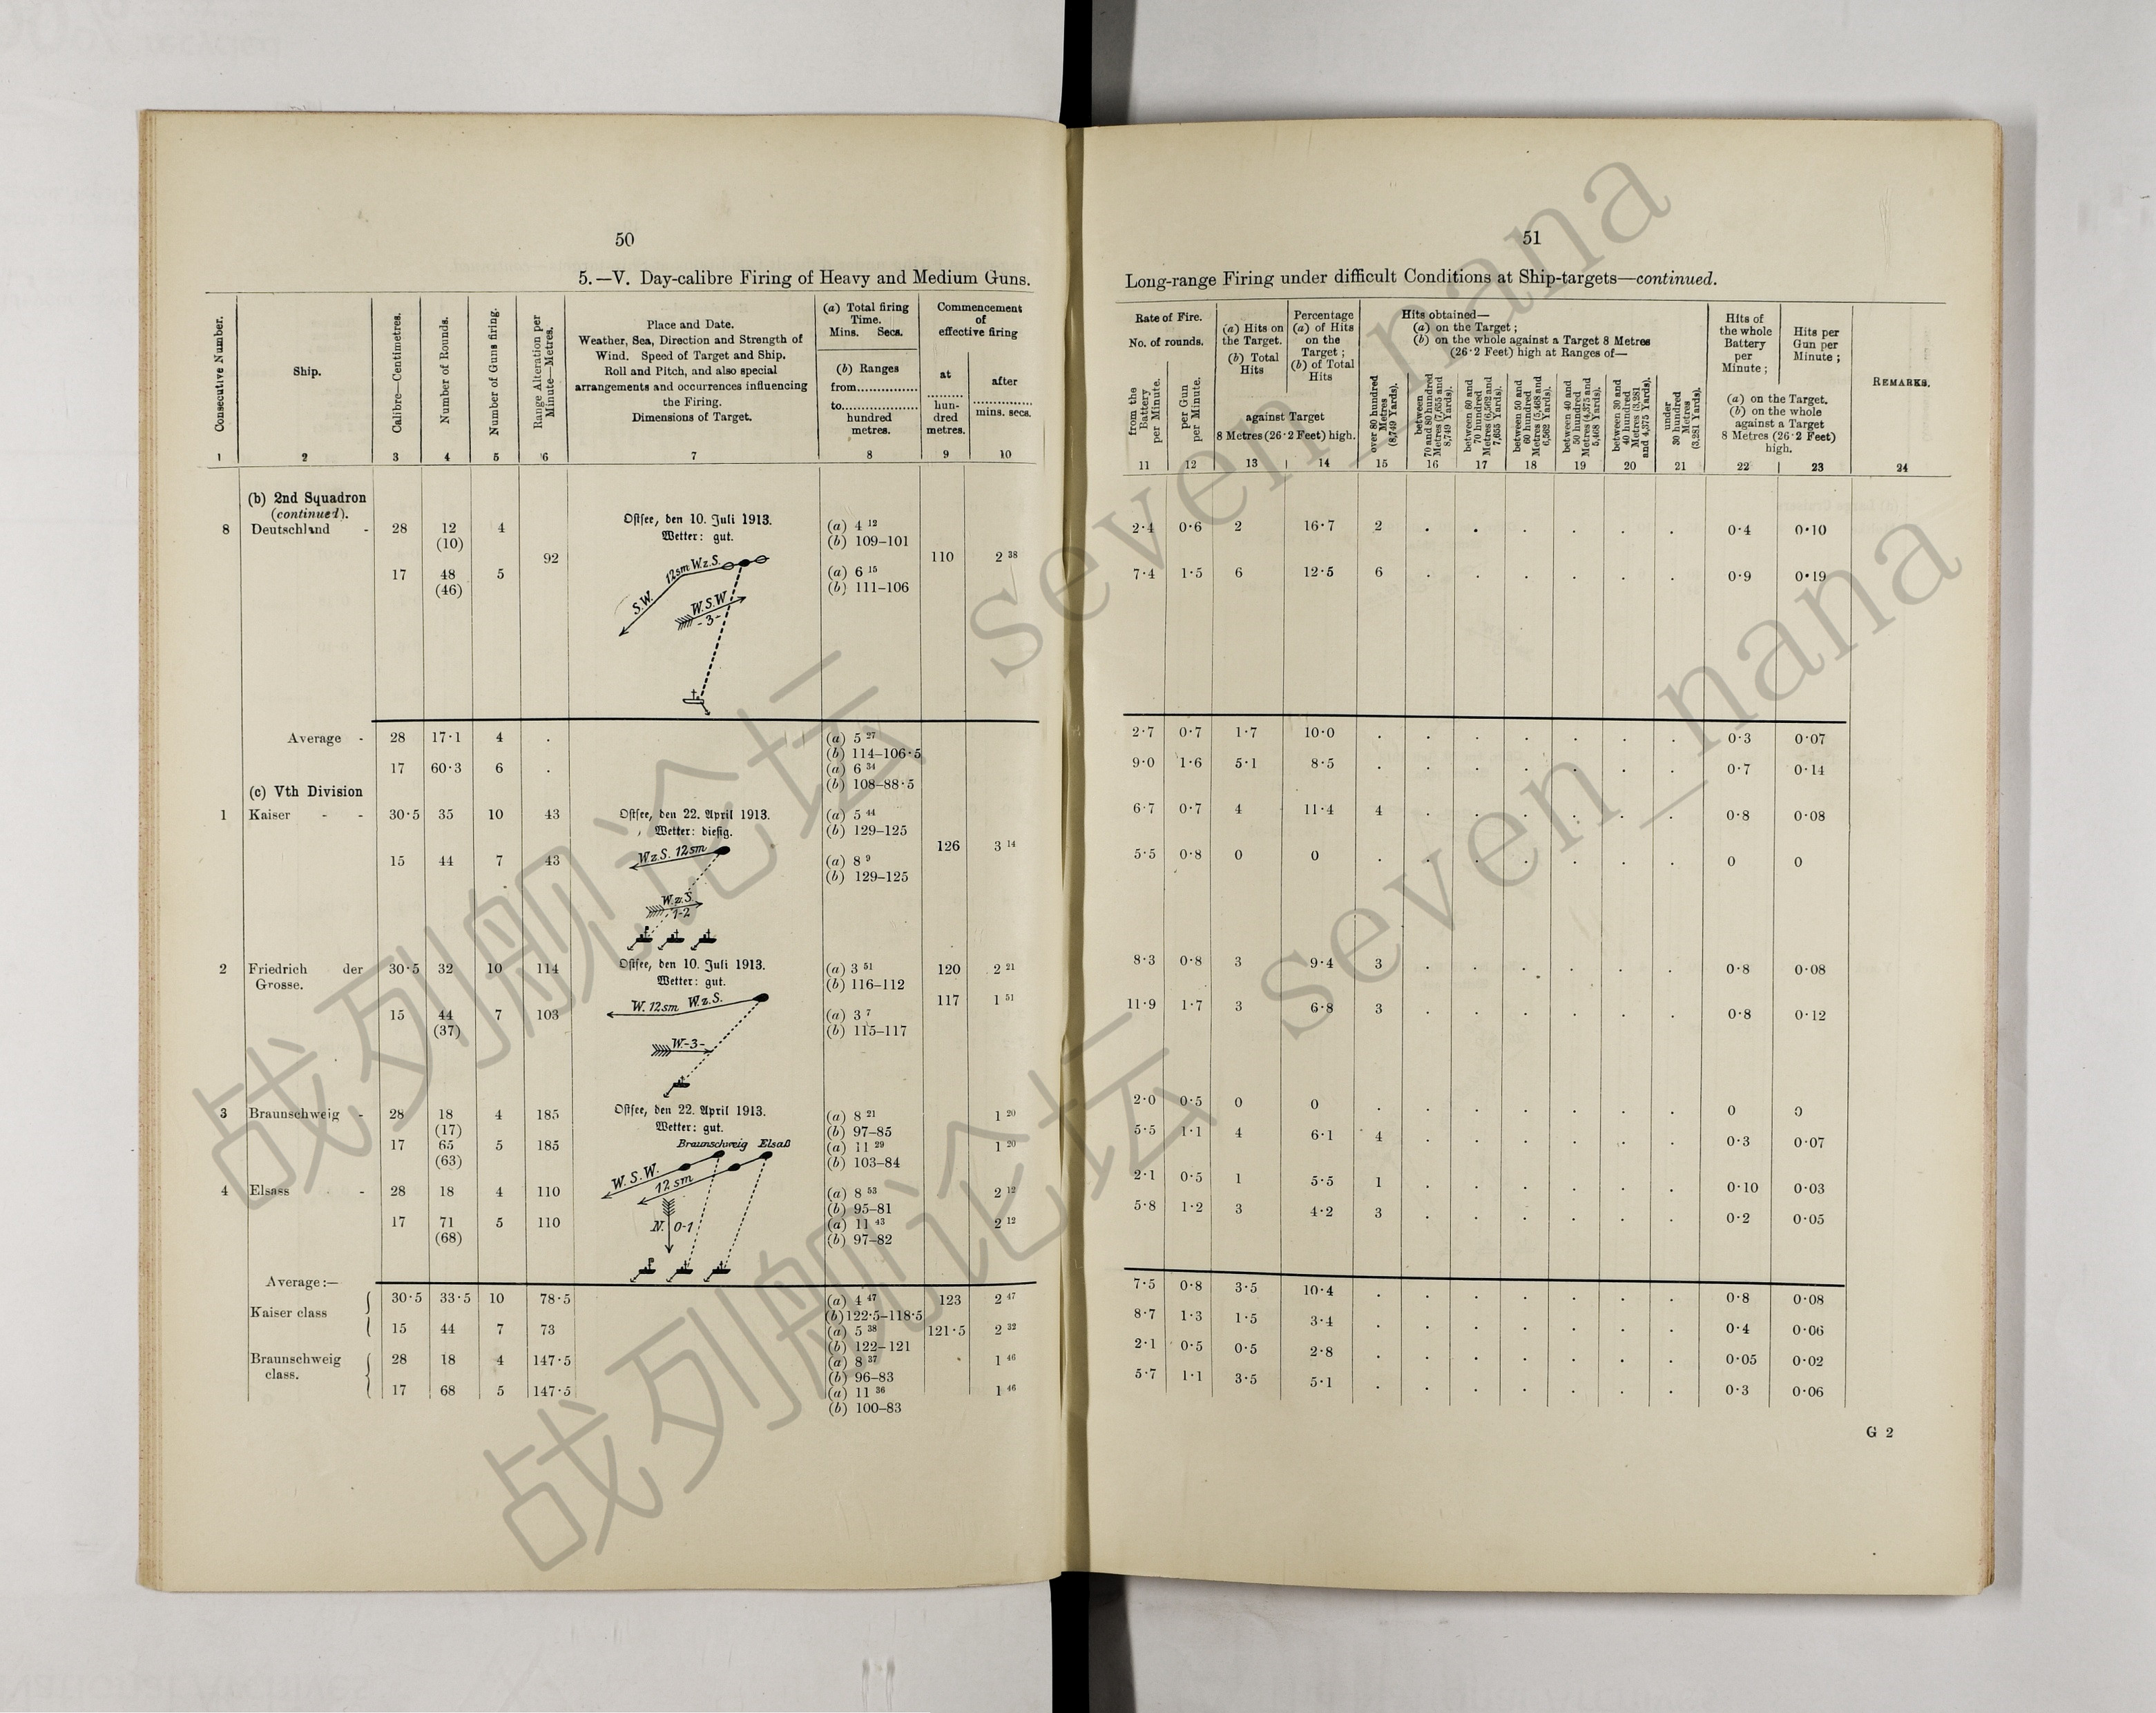 50
5.—V. Day-calibre Firing of Heavy and Medium Guns.
Consecutive Number.
Ship.
Calibre—Centimetres.
Number of Rounds.
Number of Guns firing.
Range Alteration per Minute—Metres.
Place and Date.
Weather, Sea, Direction and Strength of
Wind. Speed of Target and Ship.
Roll and Pitch, and also special
arrangements and occurrences influencing
the Firing.
Dimensions of Target.
(a) Total firing
Time.
Mins. Secs.
(b) Ranges
from...............
to...................
hundred
metres.
Commencement
of
effective firing
at
.........
hun-
dred
metres.
after
...............
mins. secs.
1 2 3 4 5 6 7 8 9 10
(b) 2nd Squadron
(continued).
8 Deutschland - 28 12 4 Ostsee, den 10. Juli 1913. (a) 4 12
(10) Wetter: gut. (b) 109–101
92 110 2 38
12sm W.z.S.
17 48 5 (a) 6 15
(46) (b) 111–106
S.W.
W.S.W
-3-
Average - 28 17·1 4 . (a) 5 27
(b) 114–106·5
17 60·3 6 . (a) 6 34
(b) 108–88·5
(c) Vth Division
1 Kaiser - - 30·5 35 10 43 Ostsee, den 22. April 1913. (a) 5 44
Wetter: diesig. (b) 129–125
126 3 14
W.z.S. 12sm
15 44 7 43 (a) 8 9
(b) 129–125
W.z.S.
1-2
2 Friedrich der 30·5 32 10 114 Ostsee, den 10. Juli 1913. (a) 3 51 120 2 21
Grosse. Wetter: gut. (b) 116–112
W. 12sm W.z.S. 117 1 51
15 44 7 103 (a) 3 7
(37) (b) 115–117
W.-3-
3 Braunschweig - 28 18 4 185 Ostsee, den 22. April 1913. (a) 8 21 1 20
(17) Wetter: gut. (b) 97–85
17 65 5 185 Braunschweig Elsaß (a) 11 29 1 20
(63) (b) 103–84
W.S.W.
12 sm
4 Elsass - 28 18 4 110 (a) 8 53 2 12
(b) 95–81
17 71 5 110 N. 0-1 (a) 11 43 2 12
(68) (b) 97–82
Average:—
Kaiser class
30·5 33·5 10 78·5 (a) 4 47 123 2 47
(b) 122·5–118·5
15 44 7 73 (a) 5 38 121·5 2 32
(b) 122–121
Braunschweig
class.
28 18 4 147·5 (a) 8 37 1 46
(b) 96–83
17 68 5 147·5 (a) 11 36 1 46
(b) 100–83
51
Long-range Firing under difficult Conditions at Ship-targets—continued.
Rate of Fire.
No. of rounds.
from the Battery per Minute.
per Gun per Minute.
(a) Hits on
the Target.
(b) Total
Hits
Percentage
(a) of Hits
on the
Target;
(b) of Total
Hits
against Target
8 Metres (26·2 Feet) high.
Hits obtained—
(a) on the Target;
(b) on the whole against a Target 8 Metres
(26·2 Feet) high at Ranges of—
over 80 hundred Metres (8,749 Yards).
between 70 and 80 hundred Metres (7,655 and 8,749 Yards).
between 60 and 70 hundred Metres (6,562 and 7,655 Yards).
between 50 and 60 hundred Metres (5,468 and 6,562 Yards).
between 40 and 50 hundred Metres (4,375 and 5,468 Yards).
between 30 and 40 hundred Metres (3,281 and 4,375 Yards).
under 30 hundred Metres (3,281 Yards).
Hits of
the whole
Battery
per
Minute;
Hits per
Gun per
Minute;
(a) on the Target.
(b) on the whole
against a Target
8 Metres (26·2 Feet)
high.
REMARKS.
11 12 13 14 15 16 17 18 19 20 21 22 23 24
2·4 0·6 2 16·7 2 . . . . . . 0·4 0·10
7·4 1·5 6 12·5 6 . . . . . . 0·9 0·19
2·7 0·7 1·7 10·0 . . . . . . . 0·3 0·07
9·0 1·6 5·1 8·5 . . . . . . . 0·7 0·14
6·7 0·7 4 11·4 4 . . . . . . 0·8 0·08
5·5 0·8 0 0 . . . . . . . 0 0
8·3 0·8 3 9·4 3 . . . . . . 0·8 0·08
11·9 1·7 3 6·8 3 . . . . . . 0·8 0·12
2·0 0·5 0 0 . . . . . . . 0 0
5·5 1·1 4 6·1 4 . . . . . . 0·3 0·07
2·1 0·5 1 5·5 1 . . . . . . 0·10 0·03
5·8 1·2 3 4·2 3 . . . . . . 0·2 0·05
7·5 0·8 3·5 10·4 . . . . . . . 0·8 0·08
8·7 1·3 1·5 3·4 . . . . . . . 0·4 0·06
2·1 0·5 0·5 2·8 . . . . . . . 0·05 0·02
5·7 1·1 3·5 5·1 . . . . . . . 0·3 0·06
G 2
战列舰论坛 seven_nana
战列舰论坛 seven_nana